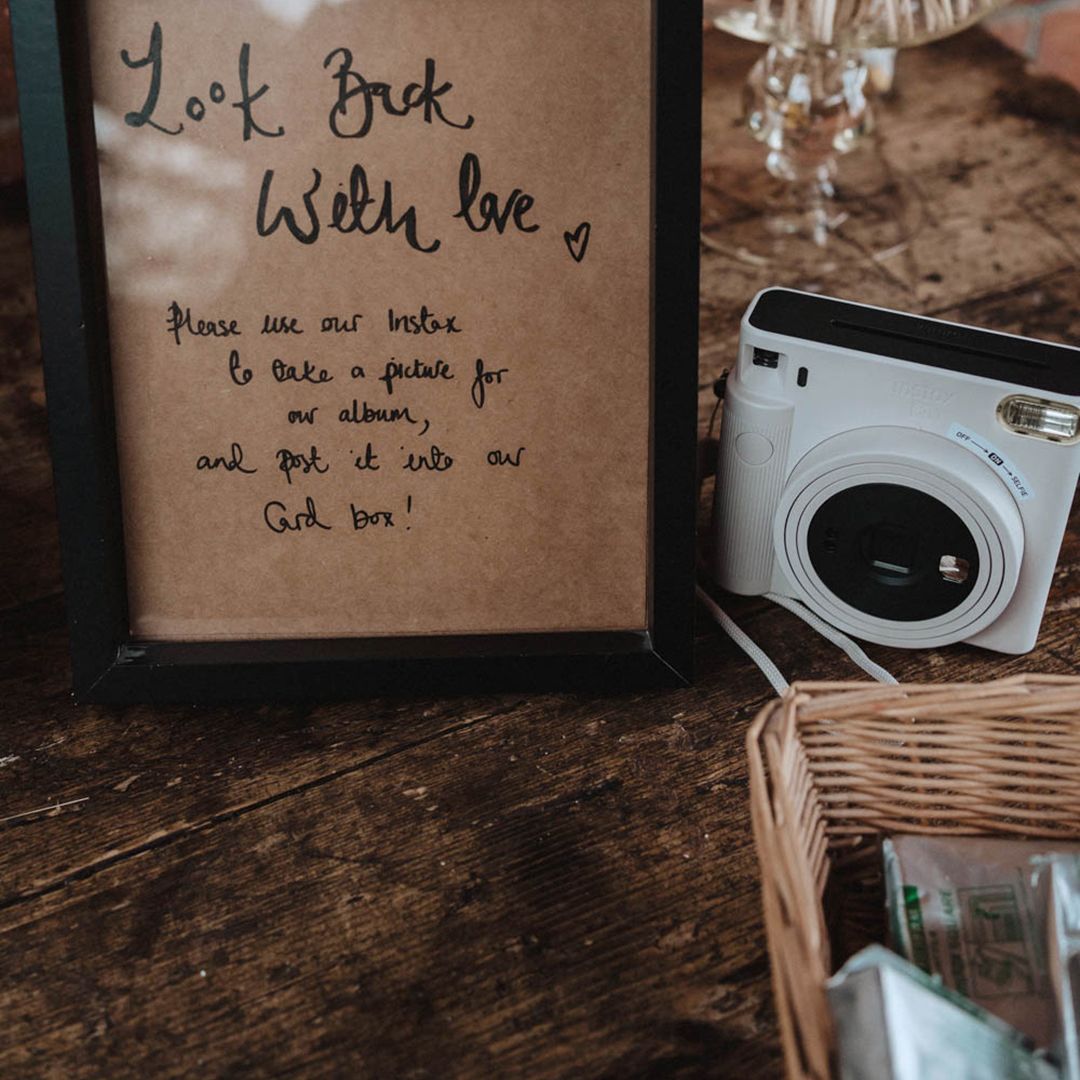 Look Back
With love
Please use our Instax
to take a picture for
our album,
and post it into our
Card box!
instax
OFF ON SELFIE